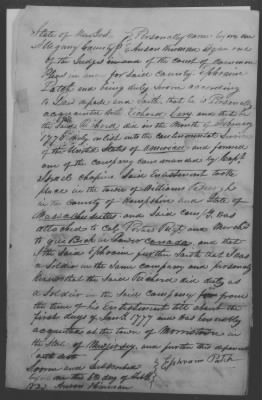 State of New York } Personally came before me
Allegany County } Anson Hinman Esqr one
of the Judges in and of the Court of Common
Pleas in and for Said County Ephraim
Patch and being duly Sworn according
to Law deposeth and Saith, that he is Personally
acquainted with Richard Cary and that
the Said Richard did in the Month of
1776 duly enlist in the Continental Service
of the United States of America and joined
one of the Company commanded by Capt
Israel Chapin Said Enlistment took
place in the town of Williams Burgh
in the County of Hampshire and State of
Massachusetts and Said Comy was
attached to Col Porters Regt and Marched
to Quebeck in Lower Canada, and that
I the Said Ephraim further Saith that I was
a Soldier in the Same Company and personally
know that the Said Richard did duty as
a Soldier in the Said Company from
the time of his Enlistment till about the
first day of Jany 1777 and was honorably
at the town of Morristown in
the State of New Jersey, and further this deponent
Saith not
Sworn and Subscribed } Ephraim Patch
before me this 6th day of
1832 Anson Hinman